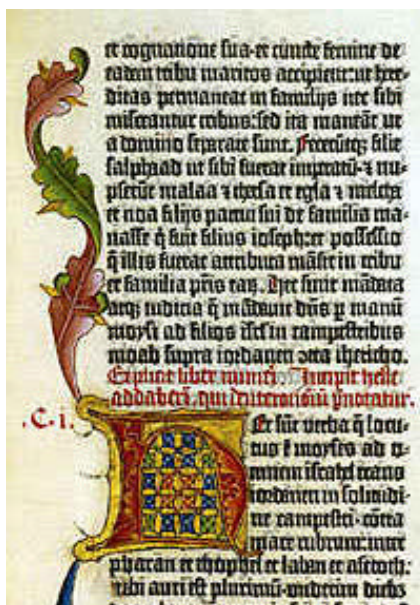 et cognatione sua: et cuncte femine de
eadem tribu maritos accipient: ut here-
ditas permaneat in familijs nec sibi
misceantur tribus: sed ita maneāt ut
a domino separate sunt. Fecerūtq; filie
salphaad ut sibi fuerat imperatū: ⁊ nu-
pserūt maala ⁊ thersa et egla ⁊ melcha
et noa filijs patrui sui de familia ma-
nasse q̄ fuit filius ioseph: et possessio
q̄ illis fuerat attributa māsit in tribu
et familia pr̄is eaꝝ. Hec sunt mādata
atq; iudicia q̄ mādavit dn̄s ꝑ manū
moysi ad filios isrl̄ in campestribus
moab supra iordanen cōtra ihericho.
Explicit liber numeri. Incipit helle
addabarim, qui deuteronomiū p̄notatur.
.C. i.
Hec sūt verba q̄ locu-
tus ē moyses ad o-
mnem israhel trans
iordanen in solitudi-
ne campestri · cōtra
mare rubrum: inter
pharan et thophel et laban et aseroth:
ubi auri est plurimū: undecim diebus